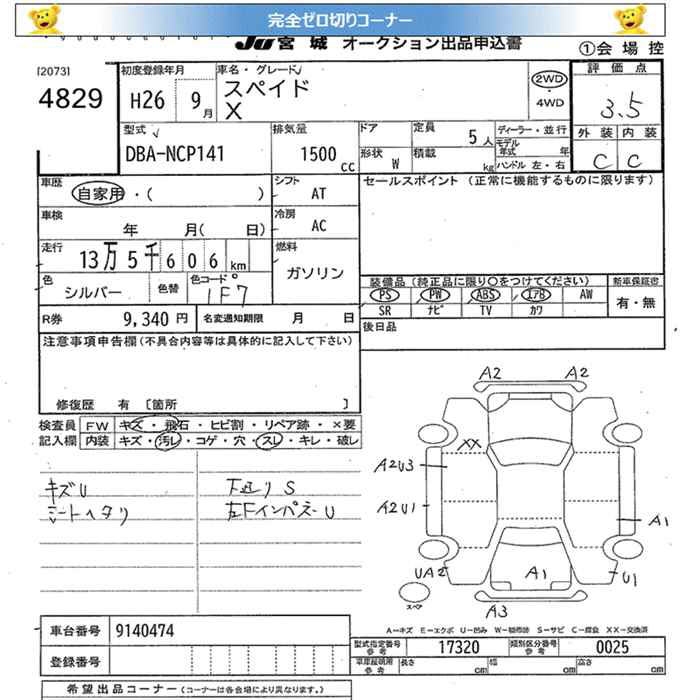 完全ゼロ切りコーナー
JU宮城 オークション出品申込書
①会場控
[2073]
4829
初度登録年月
H26 9月
車名・グレード
スペイド
X
2WD
・
4WD
評価点
3.5
外装 内装
C C
型式
DBA-NCP141
排気量
1500 cc
ドア
形状 W
定員 5人
積載 kg
ディーラー・並行
モデル年式 年
ハンドル 左・右
車歴
自家用・( )
シフト
AT
セールスポイント (正常に機能するものに限ります)
車検
年 月( 日)
冷房
AC
走行
13万5千606km
燃料
ガソリン
色
シルバー
色替
色コード
1F7
装備品 (純正品に限り○をつけてください)
PS PW ABS エアB AW
SR ナビ TV カワ
新車保証書
有・無
R券 9,340円
名変通知期限 月 日
後日品
注意事項申告欄(不具合内容等は具体的に記入して下さい)
修復歴 有 [箇所 ]
検査員記入欄
FW キズ・飛石・ヒビ割・リペア跡・×要
内装 キズ・汚レ・コゲ・穴・スレ・キレ・破レ
キズU
シートヘタリ
下廻りS
左FインパネU
A2 A2
XX
A2U3
A2U1
A1
UA2
A1
U1
A3
スペア
A-キズ E-エクボ U-凹み W-補修跡 S-サビ C-腐食 XX-交換済
車台番号 9140474
登録番号
型式指定番号 参考 17320
類別区分番号 参考 0025
車庫証明用 参考 長さ cm 幅 cm 高さ cm
希望出品コーナー (コーナーは各会場により異なります。)